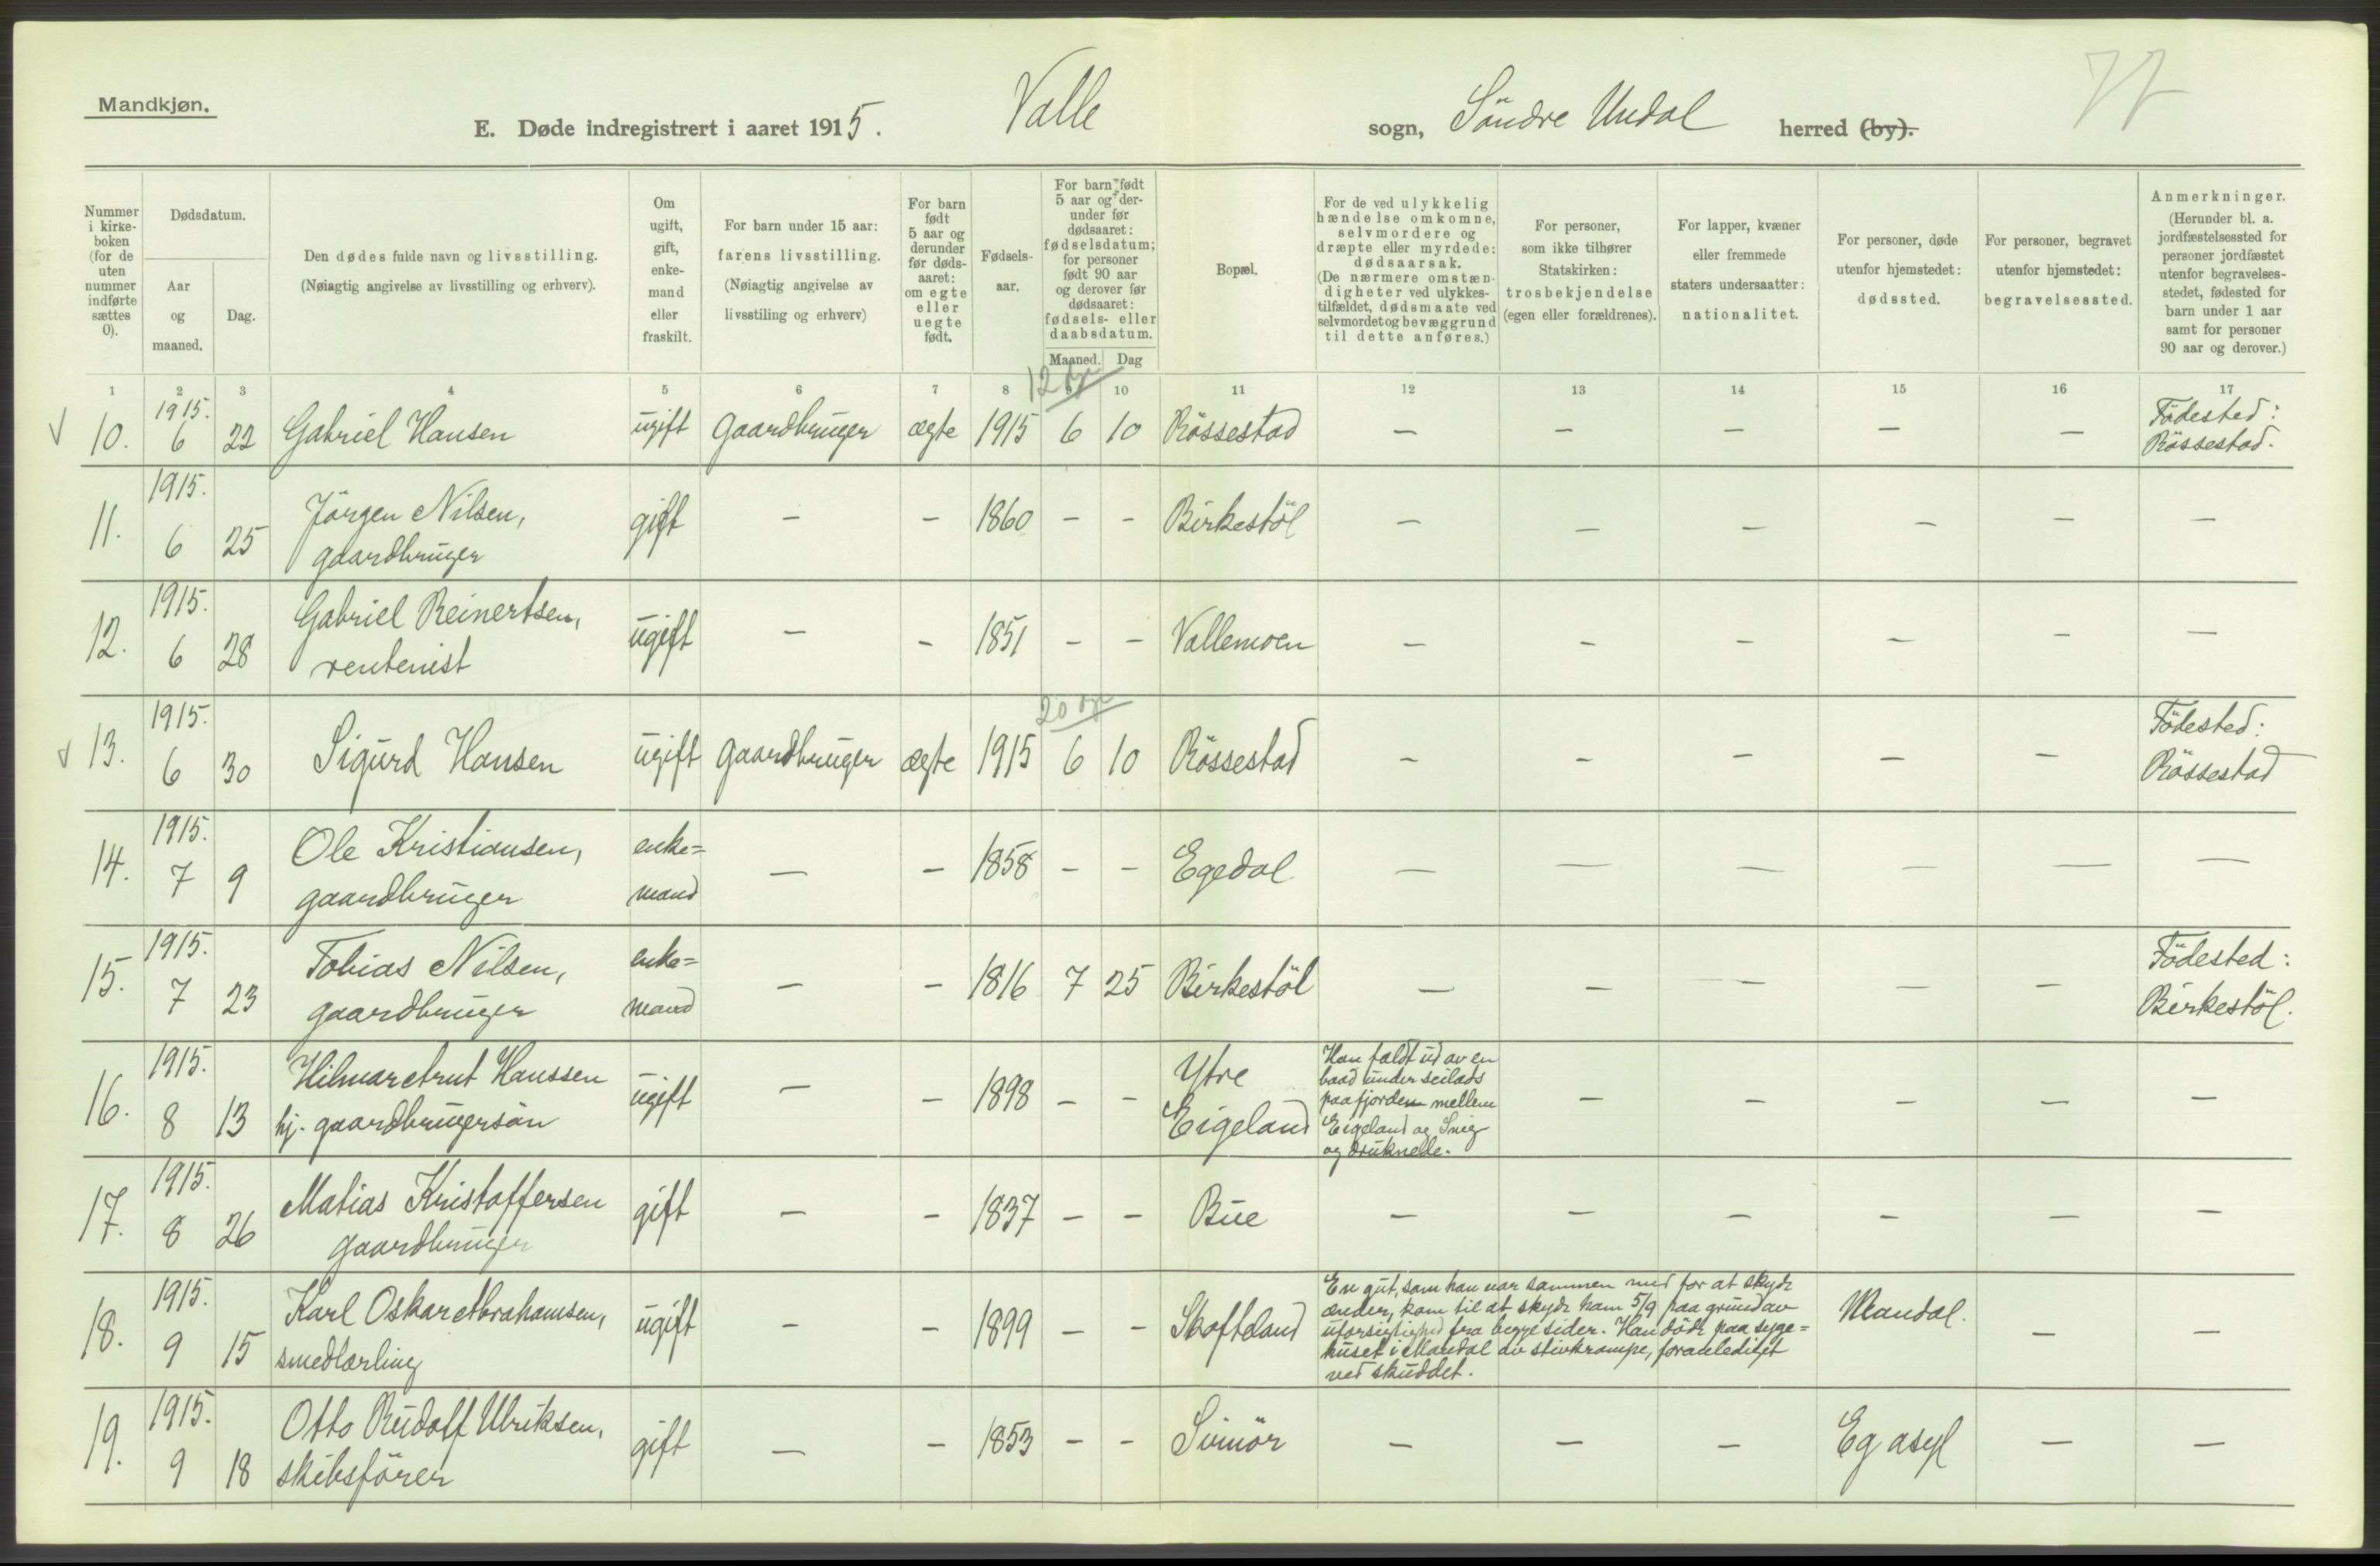 Mandkjøn.
E. Døde indregistrert i aaret 1915. Valle sogn, Söndre Undal herred (by).
77
Nummer i kirke-boken (for de uten nummer indførte sættes 0).
Dødsdatum.
Aar og maaned.
Dag.
Den dødes fulde navn og livsstilling.
(Nøiagtig angivelse av livsstilling og erhverv).
Om ugift, gift, enke-mand eller fraskilt.
For barn under 15 aar:
farens livsstilling.
(Nøiagtig angivelse av livsstiling og erhverv)
For barn født 5 aar og derunder før døds-aaret: om egte eller uegte født.
Fødsels-aar.
For barn født 5 aar og der-under før dødsaaret: fødselsdatum; for personer født 90 aar og derover før dødsaaret: fødsels- eller daabsdatum.
Maaned. Dag
Bopæl.
For de ved ulykkelig hændelse omkomne, selvmordere og dræpte eller myrdede: dødsaarsak. (De nærmere omstæn-digheter ved ulykkes-tilfældet, dødsmaate ved selvmordet og bevæggrund til dette anføres.)
For personer, som ikke tilhører Statskirken: trosbekjendelse (egen eller forældrenes).
For lapper, kvæner eller fremmede staters undersaatter: nationalitet.
For personer, døde utenfor hjemstedet: dødssted.
For personer, begravet utenfor hjemstedet: begravelsessted.
Anmerkninger. (Herunder bl. a. jordfæstelsessted for personer jordfæstet utenfor begravelses-stedet, fødested for barn under 1 aar samt for personer 90 aar og derover.)
1 2 3 4 5 6 7 8 9 10 11 12 13 14 15 16 17
12 dgr
10. 1915. 6 22 Gabriel Hansen ugift gaardbruger ægte 1915 6 10 Rössestad — — — — — Födested: Rössestad.
11. 1915. 6 25 Jörgen Nilsen, gaardbruger gift — — 1860 — — Birkestöl — — — — — —
12. 1915. 6 28 Gabriel Reinertsen, rentenist ugift — — 1851 — — Vallemoen — — — — — —
20 dgr
13. 1915. 6 30 Sigurd Hansen ugift gaardbruger ægte 1915 6 10 Rössestad — — — — — Födested: Rössestad
14. 1915. 7 9 Ole Kristiansen, gaardbruger enke=mand — — 1858 — — Egedal — — — — — —
15. 1915. 7 23 Tobias Nilsen, gaardbruger enke=mand — — 1816 7 25 Birkestöl — — — — — Födested: Birkestöl.
16. 1915. 8 13 Hilmar Arnt Hanssen hj. gaardbrugersön ugift — — 1898 — — Ytre Eigeland
Han faldt ud av en
baad under seilads
paa fjorden mellem
Eigeland og Snig
og druknede.
— — — — —
17. 1915. 8 26 Matias Kristoffersen gaardbruger gift — — 1837 — — Büe — — — — — —
18. 1915. 9 15 Karl Oskar Abrahamsen, smedlærling ugift — — 1899 — — Skofteland
En gut, som han var sammen med for at skyde
ænder, kom til at skyde ham 5/9 paa grund av
uforsigtighed fra begge sider. Han döde paa syge=
huset i Mandal av stivkrampe, foranlediget
ved skuddet.
Mandal. — —
19. 1915. 9 18 Otto Rudolf Ulriksen, skibsförer gift — — 1853 — — Svinör — — — Eg asyl — —